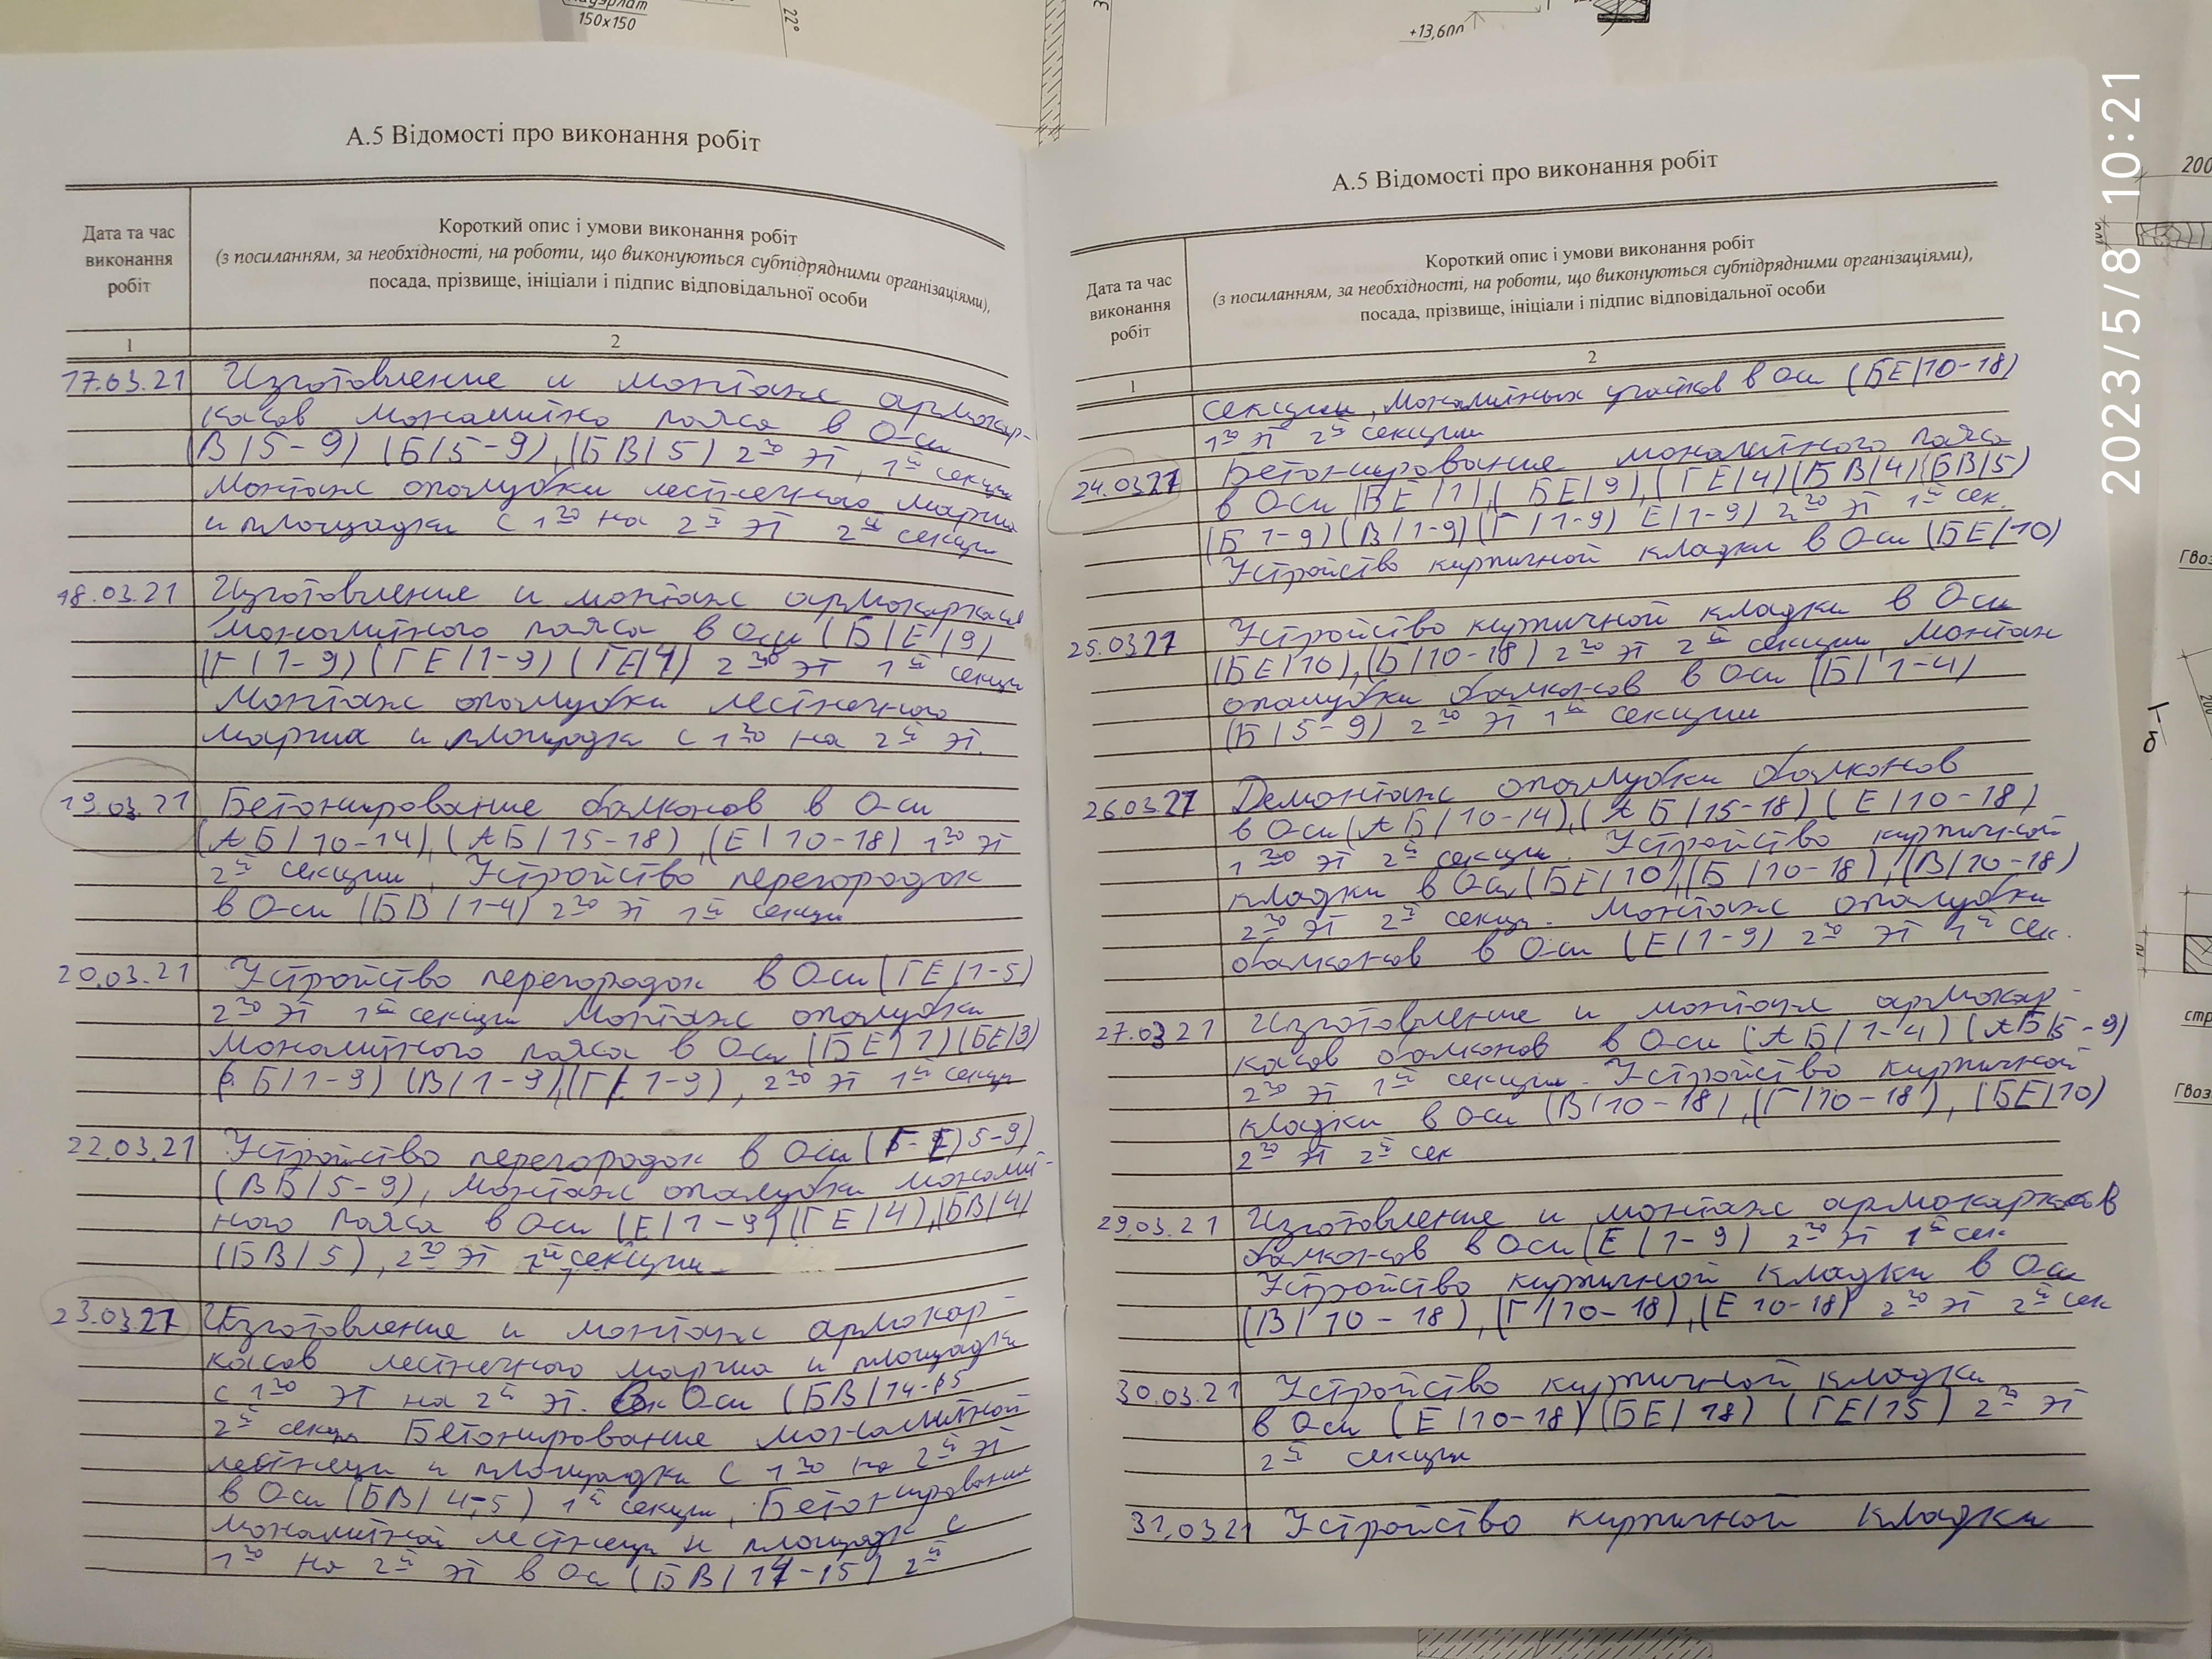 Мауэрлат
150х150
22°
+13,600
2023/5/8 10:21
200
А.5 Відомості про виконання робіт
Дата та час виконання робіт
Короткий опис і умови виконання робіт
(з посиланням, за необхідності, на роботи, що виконуються субпідрядними організаціями),
посада, прізвище, ініціали і підпис відповідальної особи
1 2
17.03.21 Изготовление и монтаж армокар-
касов монолитно пояса в Оси
(В/5-9) (Б/5-9), (БВ/5) 2го эт, 1й секции
Монтаж опалубки лестнечного марша
и площадки с 1го на 2й эт 2й секции
18.03.21 Изготовление и монтаж армокаркаса
монолитного пояса в Оси (Б/Е/9)
(Г/1-9) (ГЕ/1-9) (ГЕ/4) 2го эт 1й секции
Монтаж опалубки лестнечного
марша и площадки с 1го на 2й эт.
19.03.21 Бетонирование балконов в Оси
(АБ/10-14), (АБ/15-18), (Е/10-18) 1го эт
2й секции, Устройство перегородок
в Оси (БВ/1-4) 2го эт 1й секции
20.03.21 Устройство перегородок в Оси (ГЕ/1-5)
2го эт 1й секции Монтаж опалубки
монолитного пояса в Оси (БЕ/1) (БЕ/3)
(Б/1-9) (В/1-9), (Г/1-9), 2го эт 1й секции
22.03.21 Устройство перегородок в Оси (Г-Е)5-9)
(ВБ/5-9), монтаж опалубки монолит-
ного пояса в Оси (Е/1-9) (ГЕ/4), (БВ/4)
(БВ/5), 2го эт 1й секции
23.03.21 Изготовление и монтаж армокар-
касов лестнечного марша и площадки
с 1го эт на 2й эт. в Оси (БВ/14-15
2й секции Бетонирование монолитной
лестнеци и площадки с 1го на 2й эт
в Оси (БВ/4-5) 1й секции, Бетонирование
монолитной лестнеци и площадк с
1го на 2й эт в Оси (БВ/14-15) 2й
А.5 Відомості про виконання робіт
Дата та час виконання робіт
Короткий опис і умови виконання робіт
(з посиланням, за необхідності, на роботи, що виконуються субпідрядними організаціями),
посада, прізвище, ініціали і підпис відповідальної особи
1 2
секции, монолитных участков в Оси (БЕ/10-18)
1го эт 2й секции
24.03.21 Бетонирование монолитного пояса
в Оси (ВЕ/1), (БЕ/9), (ГЕ/4) (БВ/4) (БВ/5)
(Б 1-9) (В/1-9) (Г/1-9) Е/1-9) 2го эт 1й сек.
Устройство кирпичной кладки в Оси (БЕ/10)
25.03.21 Устройство кирпичной кладки в Оси
(БЕ/10), (Б/10-18) 2го эт 2й секции, монтаж
опалубки балконов в Оси (Б/1-4)
(Б/5-9) 2го эт 1й секции
26.03.21 Демонтаж опалубки балконов
в Оси (АБ/10-14), (АБ/15-18) (Е/10-18)
1го эт 2й секции. Устройство кирпичной
кладки в Оси (БЕ/10), (Б/10-18), (В/10-18)
2го эт 2й секци. Монтаж опалубки
балконов в Оси (Е/1-9) 2го эт 1й сек.
27.03.21 Изготовление и монтаж армокар-
касов балконов в Оси (АБ/1-4) (АБ/5-9)
2го эт 1й секции. Устройство кирпичной
кладки в Оси (В/10-18), (Г/10-18), (БЕ/10)
2го эт 2й сек
29.03.21 Изготовление и монтаж армокаркасов
балконов в Оси (Е/1-9) 2го эт 1й сек
Устройство кирпичной кладки в Оси
(В/10-18), (Г/10-18), (Е 10-18) 2го эт 2й сек
30.03.21 Устройство кирпичной кладки
в Оси (Е/10-18) (БЕ/18) (ГЕ/15) 2го эт
2й секции
31.03.21 Устройство кирпичной кладки